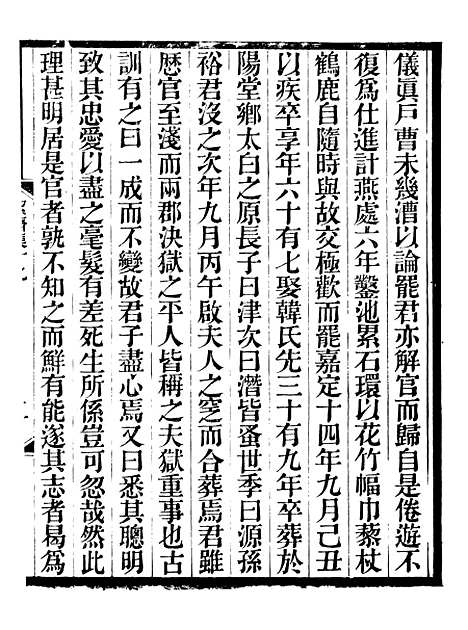 儀眞戸曹未幾漕以論罷君亦解官而歸自是倦遊不
復爲仕進計燕處六年鑿池累石環以花竹幅巾藜杖
鶴鹿自隨時與故交極歡而罷嘉定十四年九月己丑
以疾卒享年六十有七娶韓氏先三十有九年卒葬於
陽堂鄉太白之原長子曰津次曰潛皆蚤世季曰源孫
裕君沒之次年九月丙午啟夫人之窆而合葬焉君雖
歷官至淺而兩郡決獄之平人皆稱之夫獄重事也古
訓有之曰一成而不變故君子盡心焉又曰悉其聰明
致其忠愛以盡之毫髮有差死生所係豈可忽哉然此
理甚明居是官者孰不知之而鮮有能遂其志者曷爲